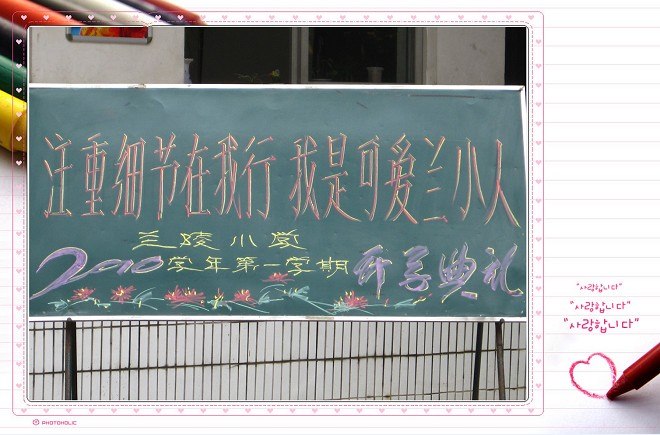 注重细节在我行 我是可爱兰小人
兰陵小学
2010学年第一学期 开学典礼
"사랑합니다"
"사랑합니다"
"사랑합니다"
PHOTOHOLIC